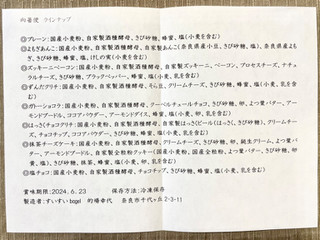 ◎プレーン:国産小麦粉、自家製酒種酵母、きび砂糖、蜂蜜、塩(小麦を含む)
◎よもぎあんこ:国産小麦粉、自家製酒種酵母、自家製あんこ(奈良県産小豆、きび砂糖、塩)、奈良県産よも
ぎ、きび砂糖、蜂蜜、塩、けしの実(小麦を含む)
◎ズッキーニベーコン:国産小麦粉、自家製酒種酵母、自家製ズッキーニ、ベーコン、プロセスチーズ、ナチュ
ラルチーズ、きび砂糖、ブラックペッパー、蜂蜜、塩(小麦、乳を含む)
◎ずんだクリチ:国産小麦粉、自家製酒種酵母、そら豆、クリームチーズ、きび砂糖、蜂蜜、塩(小麦、乳を
含む)
◎ガトーショコラ:国産小麦粉、自家製酒種酵母、クーベルチュールチョコ、きび砂糖、卵、よつ葉バター、アー
モンドプードル、ココアパウダー、アーモンドダイス、蜂蜜、塩(小麦、卵、乳を含む)
◎はっさくチョコクリチ:国産小麦粉、自家製酒種酵母、自家製はっさくピール(はっさく、きび砂糖)、クリームチー
ズ、チョコチップ、ココアパウダー、きび砂糖、蜂蜜、塩(小麦、乳を含む)
◎抹茶チーズケーキ:国産小麦粉、自家製酒種酵母、クリームチーズ、きび砂糖、卵、純生クリーム、よつ葉バ
ター、アーモンドプードル、自家製全粒粉クッキー(国産小麦粉、国産全粒粉、よつ葉バター、きび砂糖、卵
黄、塩)、きび砂糖、抹茶、蜂蜜、塩(小麦、卵、乳を含む)
◎塩チョコ:国産小麦粉、自家製酒種酵母、チョコチップ、きび砂糖、蜂蜜、塩(小麦、乳を含む)
賞味期限:2024.6.23 保存方法:冷凍保存
製造者:すいすいbagel 的場幸代 奈良市千代ヶ丘2-3-11